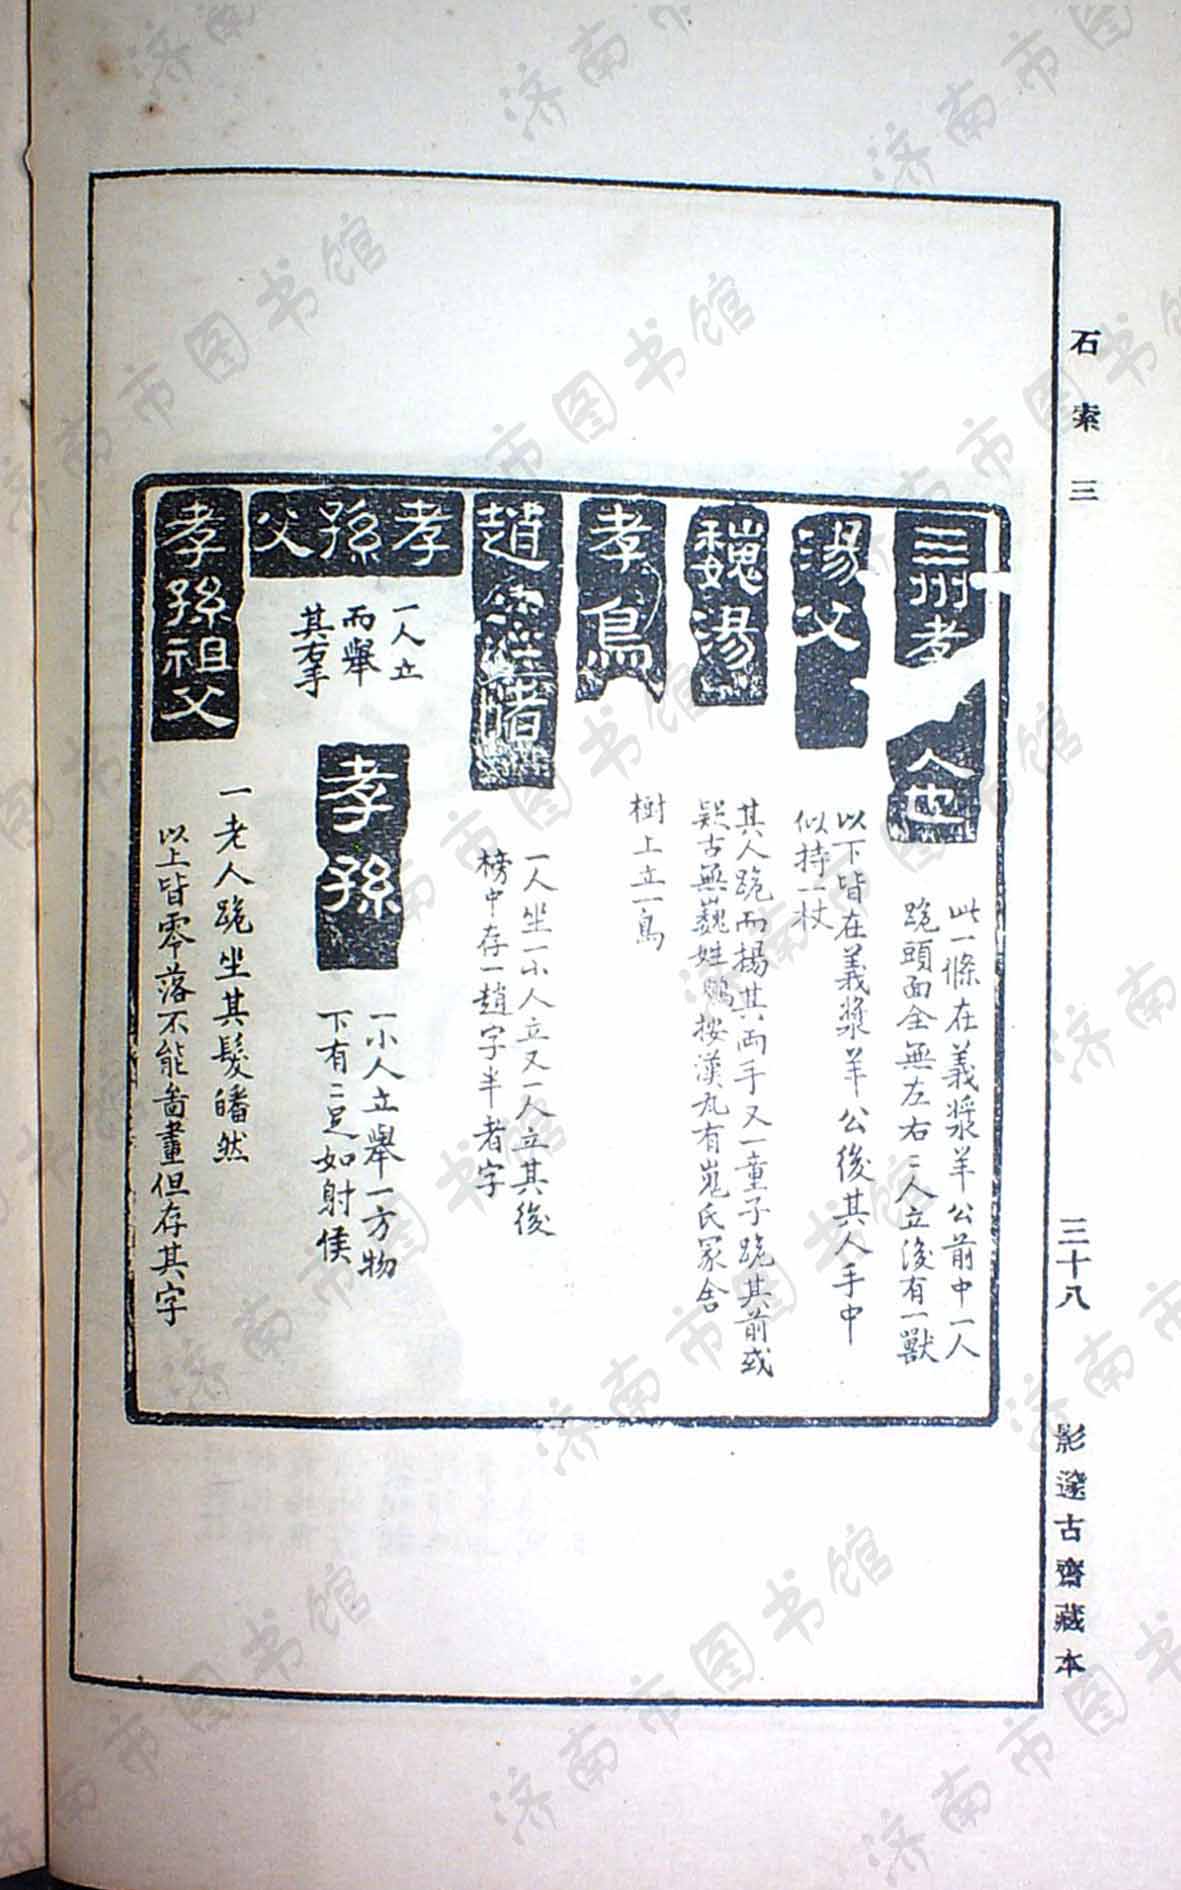 石索三
三十八
影邃古齋藏本
三州孝
人也
此一條在義漿羊公前中一人
跪頭面全無左右二人立後有一獸
湯父
以下皆在義漿羊公後其人手中
似持一杖
魏湯
其人跪而揚其兩手又一童子跪其前或
疑古無巍姓鵬按漢瓦有嵬氏冢舍
孝烏
樹上立一烏
趙
一人坐一小人立又一人立其後
榜中存一趙字半者字
孝孫父
一人立
而舉
其右手
孝孫
一小人立舉一方物
下有二足如射侯
孝孫祖父
一老人跪坐其髮皤然
以上皆零落不能啚畫但存其字
济南市图书馆